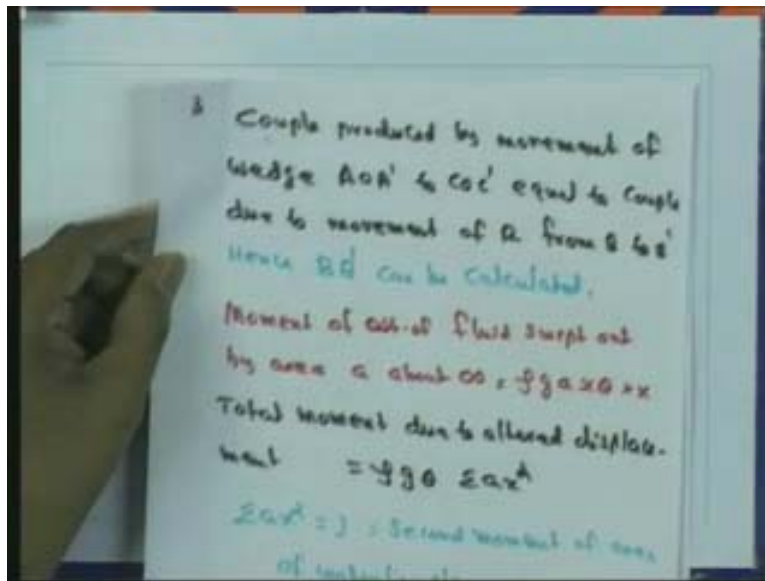 Couple produced by movement of
wedge AOA' to COC' equal to couple
due to movement of R from B to B'
Hence BB' can be calculated.
Moment of of fluid swept out
by area a about OO = ρg a x θ × x
Total moment due to altered displace-
ment = ρgθ Σax²
Σax² = I = Second moment of area
of